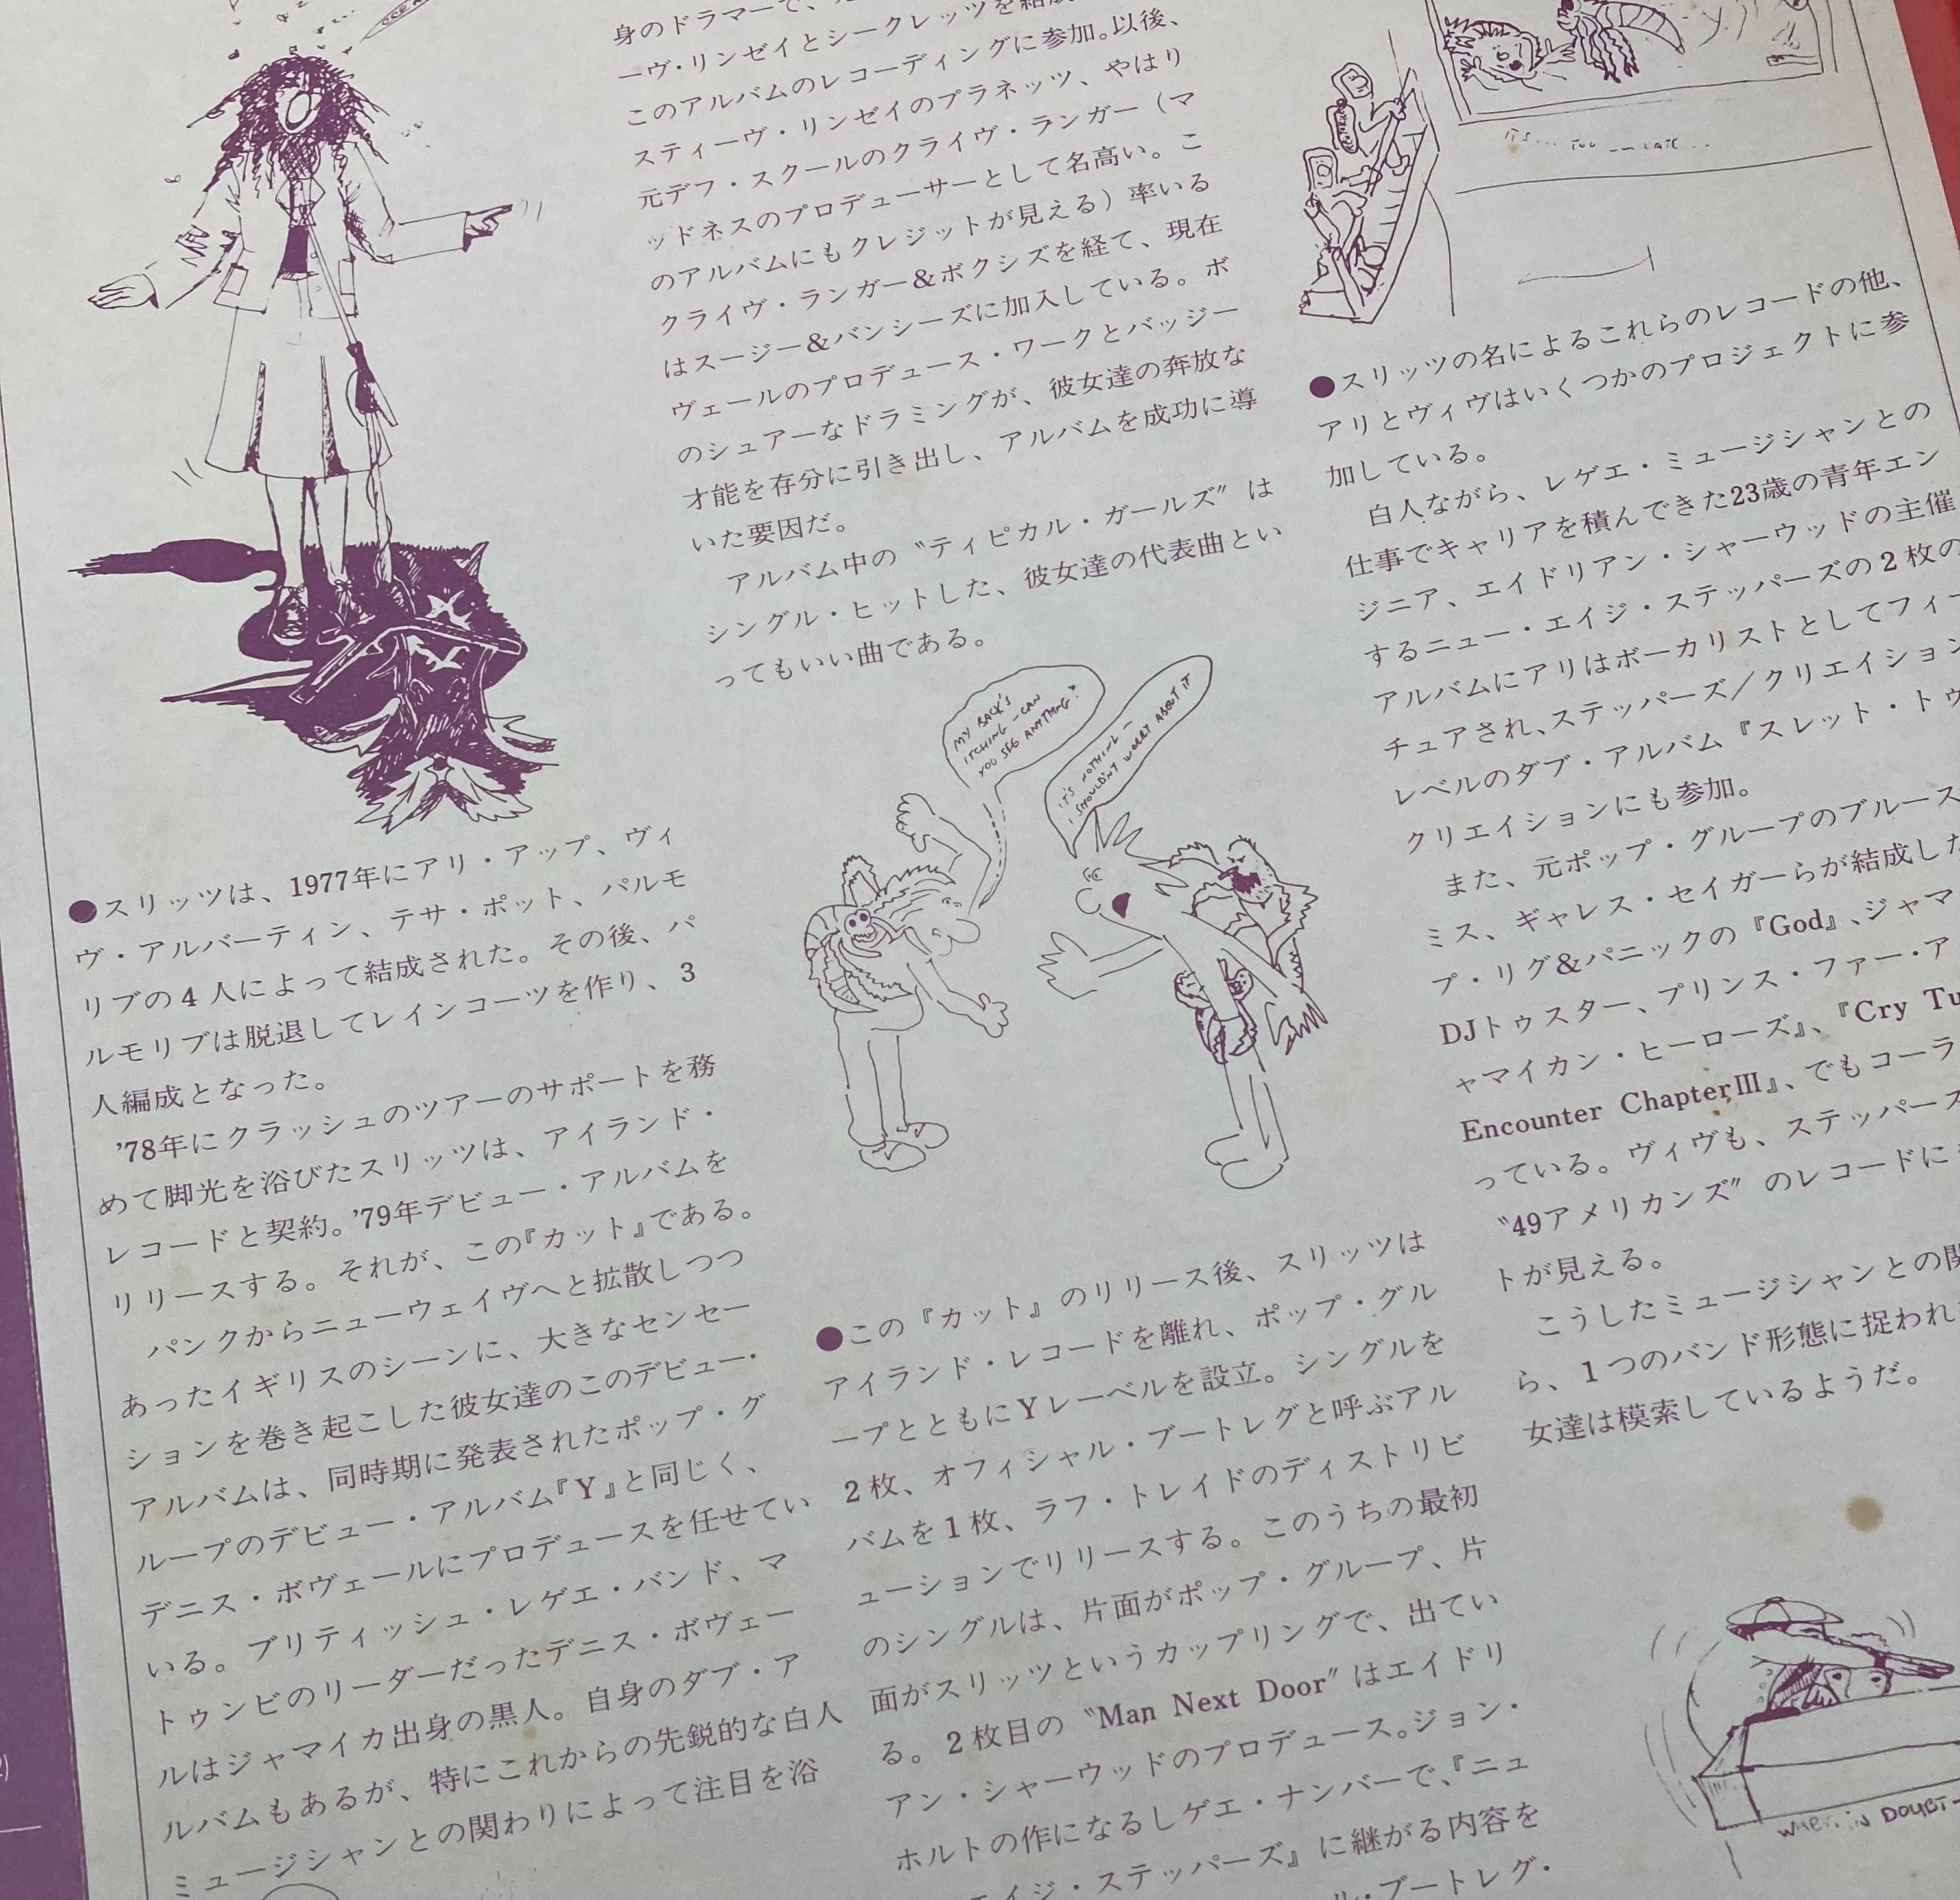 ●スリッツは、1977年にアリ・アップ、ヴィ
ヴ・アルバーティン、テサ・ポット、パルモ
リブの4人によって結成された。その後、パ
ルモリブは脱退してレインコーツを作り、3
人編成となった。
'78年にクラッシュのツアーのサポートを務
めて脚光を浴びたスリッツは、アイランド・
レコードと契約。'79年デビュー・アルバムを
リリースする。それが、この『カット』である。
パンクからニューウェイヴへと拡散しつつ
あったイギリスのシーンに、大きなセンセー
ションを巻き起こした彼女達のこのデビュー・
アルバムは、同時期に発表されたポップ・グ
ループのデビュー・アルバム『Y』と同じく、
デニス・ボヴェールにプロデュースを任せてい
いる。ブリティッシュ・レゲエ・バンド、マ
トゥンビのリーダーだったデニス・ボヴェー
ルはジャマイカ出身の黒人。自身のダブ・ア
ルバムもあるが、特にこれからの先鋭的な白人
ミュージシャンとの関わりによって注目を浴
身のドラマーで、
ーヴ・リンゼイとシークレッツを結成
このアルバムのレコーディングに参加。以後、
スティーヴ・リンゼイのプラネッツ、やはり
元デフ・スクールのクライヴ・ランガー（マ
ッドネスのプロデューサーとして名高い。こ
のアルバムにもクレジットが見える）率いる
クライヴ・ランガー&ボクシズを経て、現在
はスージー&バンシーズに加入している。ボ
ヴェールのプロデュース・ワークとバッジー
のシュアーなドラミングが、彼女達の奔放な
才能を存分に引き出し、アルバムを成功に導
いた要因だ。
アルバム中の〝ティピカル・ガールズ〟は
シングル・ヒットした、彼女達の代表曲とい
ってもいい曲である。
MY BACK'S
ITCHING - CAN
YOU SEE ANYTHING?
IT'S NOTHING -
I SHOULDN'T WORRY ABOUT IT
●この『カット』のリリース後、スリッツは
アイランド・レコードを離れ、ポップ・グル
ープとともにYレーベルを設立。シングルを
2枚、オフィシャル・ブートレグと呼ぶアル
バムを1枚、ラフ・トレイドのディストリビ
ューションでリリースする。このうちの最初
のシングルは、片面がポップ・グループ、片
面がスリッツというカップリングで、出てい
る。2枚目の〝Man Next Door〟はエイドリ
アン・シャーウッドのプロデュース。ジョン・
ホルトの作になるレゲエ・ナンバーで、『ニュ
エイジ・ステッパーズ』に継がる内容を
ル・ブートレグ・
IT'S... TOO -- LATE...
●スリッツの名によるこれらのレコードの他、
アリとヴィヴはいくつかのプロジェクトに参
加している。
白人ながら、レゲエ・ミュージシャンとの
仕事でキャリアを積んできた23歳の青年エン
ジニア、エイドリアン・シャーウッドの主催
するニュー・エイジ・ステッパーズの2枚の
アルバムにアリはボーカリストとしてフィー
チュアされ、ステッパーズ／クリエイション
レベルのダブ・アルバム『スレット・トゥ
クリエイションにも参加。
また、元ポップ・グループのブルース
ミス、ギャレス・セイガーらが結成した
プ・リグ&パニックの『God』、ジャマ
DJトゥスター、プリンス・ファー・ア
ャマイカン・ヒーローズ』、『Cry Tu
Encounter ChapterⅢ』、でもコーラ
っている。ヴィヴも、ステッパーズ
〝49アメリカンズ〟のレコードに
トが見える。
こうしたミュージシャンとの関
ら、1つのバンド形態に捉われ
女達は模索しているようだ。
WHEN IN DOUBT-